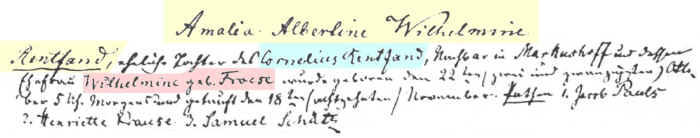 Amalia Albertine Wilhelmine
Rentfand, eheliche Tochter des Cornelius Rentfand, Nachbar in Markushoff und dessen
Ehefrau Wilhelmine geb. Froese wurde geboren den 22ten (zwei und zwanzigsten) Octo-
ber 5 Uhr Morgens und getauft den 18ten (achtzehnten) November. Pathen 1. Jacob Pauls
2. Henriette Krause 3. Samuel Schütz